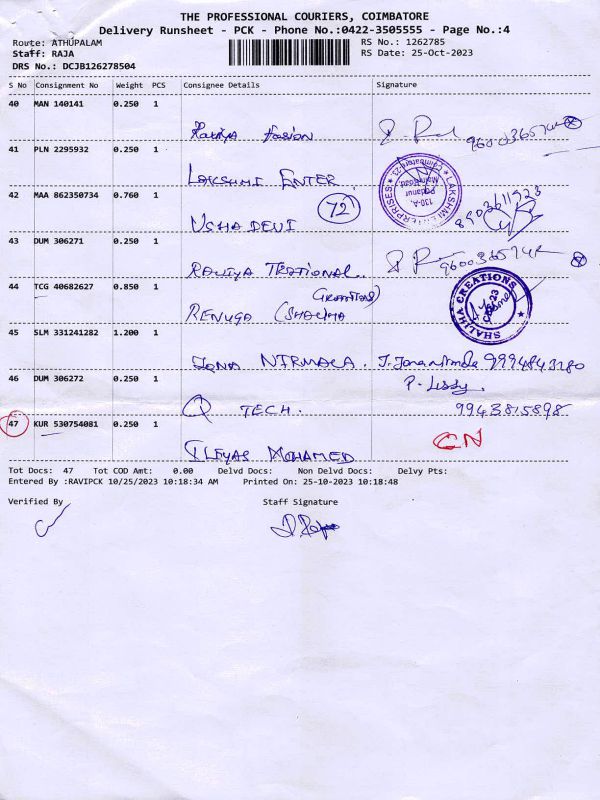 THE PROFESSIONAL COURIERS, COIMBATORE
Delivery Runsheet - PCK - Phone No.:0422-3505555 - Page No.:4
Route: ATHUPALAM
RS No.: 1262785
Staff: RAJA
RS Date: 25-Oct-2023
DRS No.: DCJB126278504
S No Consignment No Weight PCS Consignee Details Signature
40 MAN 140141 0.250 1
9600365748
41 PLN 2295932 0.250 1
LAKSHMI ENTER.
LAKSHMI ENTERPRISES
130-A,
Podanur
Main Road,
Coimbatore-23.
42 MAA 862350734 0.760 1
72
USHA DEVI
8903611923
43 DUM 306271 0.250 1
44 TCG 40682627 0.850 1
RENUGA (SHALIHA
CREATIONS)
SHALIHA CREATIONS
45 SLM 331241282 1.200 1
JONA NIRMALA. J. Jonanirmala 9994843280
46 DUM 306272 0.250 1
P. Lissy.
Q TECH. 9943815898
47 KUR 530754081 0.250 1
CN
ILEYAS MOHAMED
Tot Docs: 47 Tot COD Amt: 0.00 Delvd Docs: Non Delvd Docs: Delvy Pts:
Entered By :RAVIPCK 10/25/2023 10:18:34 AM Printed On: 25-10-2023 10:18:48
Verified By Staff Signature